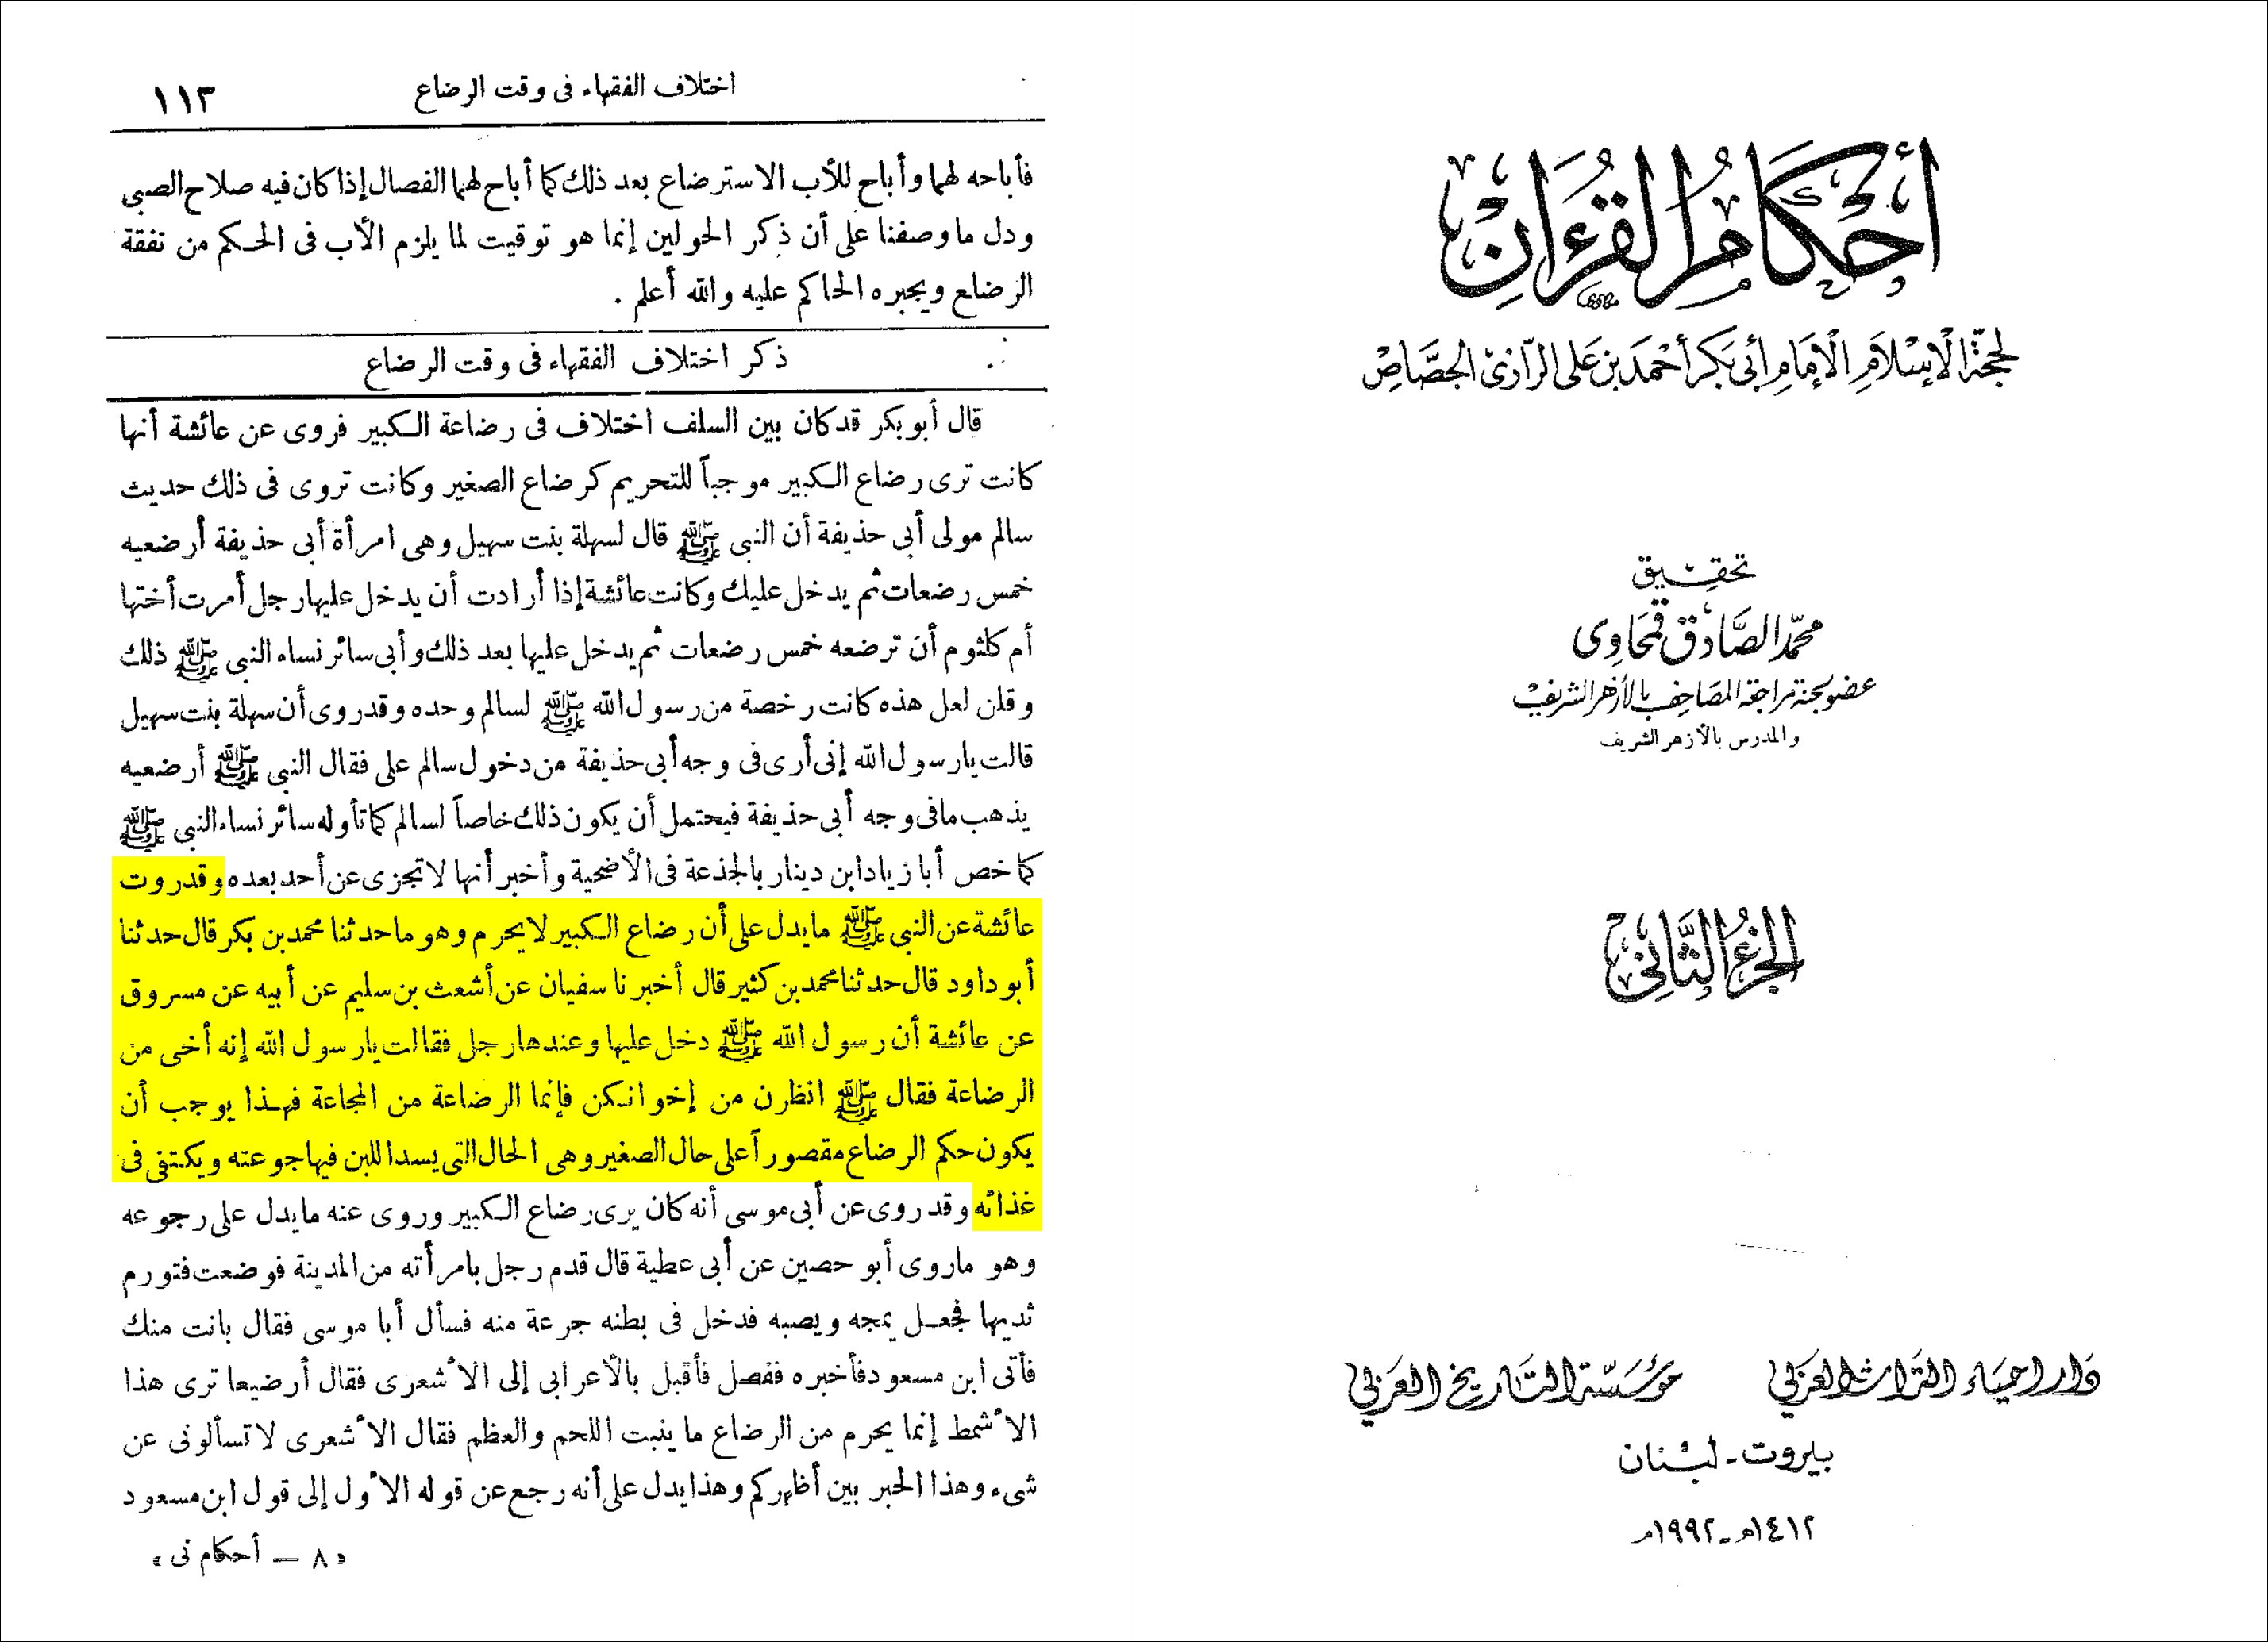 أحكام القرآن
لحجة الإسلام الإمام أبي بكر أحمد بن علي الرازي الجصاص
تحقيق
محمد الصادق قمحاوي
عضو لجنة مراجعة المصاحف بالأزهر الشريف
والمدرس بالأزهر الشريف
الجزء الثاني
دار احياء التراث العربي
مؤسسة التاريخ العربي
بيروت - لبنان
١٤١٢هـ - ١٩٩٢م
اختلاف الفقهاء فى وقت الرضاع
١١٣
فأباحه لهما وأباح للأب الاسترضاع بعد ذلك كما أباح لهما الفصال إذا كان فيه صلاح الصبى
ودل ما وصفنا على أن ذكر الحولين إنما هو توقيت لما يلزم الأب فى الحكم من نفقة
الرضاع ويجبره الحاكم عليه والله أعلم .
ذكر اختلاف الفقهاء فى وقت الرضاع
قال أبو بكر قد كان بين السلف اختلاف فى رضاعة الكبير فروى عن عائشة أنها
كانت ترى رضاع الكبير موجباً للتحريم كرضاع الصغير وكانت تروى فى ذلك حديث
سالم مولى أبى حذيفة أن النبى ﷺ قال لسهلة بنت سهيل وهى امرأة أبى حذيفة أرضعيه
خمس رضعات ثم يدخل عليك وكانت عائشة إذا أرادت أن يدخل عليها رجل أمرت أختها
أم كلثوم أن ترضعه خمس رضعات ثم يدخل عليها بعد ذلك وأبى سائر نساء النبى ﷺ ذلك
وقلن لعل هذه كانت رخصة من رسول الله ﷺ لسالم وحده وقد روى أن سهلة بنت سهيل
قالت يا رسول الله إنى أرى فى وجه أبى حذيفة من دخول سالم على فقال النبى ﷺ أرضعيه
يذهب ما فى وجه أبى حذيفة فيحتمل أن يكون ذلك خاصاً لسالم كما تأوله سائر نساء النبى ﷺ
كما خص أبا زياد ابن دينار بالجذعة فى الأضحية وأخبر أنها لا تجزى عن أحد بعده وقد روت
عائشة عن النبى ﷺ ما يدل على أن رضاع الكبير لا يحرم وهو ما حدثنا محمد بن بكر قال حدثنا
أبو داود قال حدثنا محمد بن كثير قال أخبرنا سفيان عن أشعث بن سليم عن أبيه عن مسروق
عن عائشة أن رسول الله ﷺ دخل عليها وعندها رجل فقالت يا رسول الله إنه أخى من
الرضاعة فقال ﷺ انظرن من إخوانكن فإنما الرضاعة من المجاعة فهذا يوجب أن
يكون حكم الرضاع مقصوراً على حال الصغير وهى الحال التى يسد اللبن فيها جوعته ويكتفى فى
غذائه وقد روى عن أبى موسى أنه كان يرى رضاع الكبير وروى عنه ما يدل على رجوعه
وهو ما روى أبو حصين عن أبى عطية قال قدم رجل بامرأته من المدينة فوضعت فتورم
ثديها فجعل يمجه ويصبه فدخل فى بطنه جرعة منه فسأل أبا موسى فقال بانت منك
فأتى ابن مسعود فأخبره ففصل فأقبل بالأعرابى إلى الأشعرى فقال أرضيعا ترى هذا
الأشمط إنما يحرم من الرضاع ما ينبت اللحم والعظم فقال الأشعرى لا تسألونى عن
شىء وهذا الحبر بين أظهركم وهذا يدل على أنه رجع عن قوله الأول إلى قول ابن مسعود
«٨ — أحكام نى»